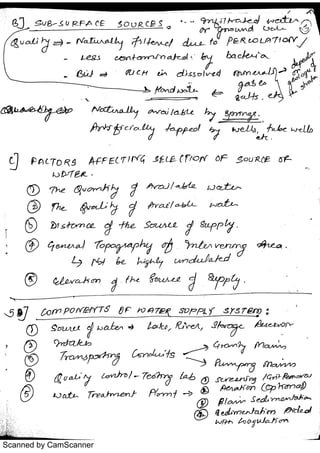 B] SUB-SURFACE SOURCES. :- Infiltrated water or Ground water
Quality → - Naturally filtered due to PERCOLATION
- Less contaminated by bacteria.
- But → RICH in dissolved minerals → depends on geology of the strata
gases
salts, etc
→ Hard water
Naturally available by springs.
Artificially tapped by wells, tube wells etc.
C] FACTORS AFFECTING SELECTION OF SOURCE OF WATER.
① The Quantity of Available water
② The Quality of Available water.
③ Distance of the Source of Supply.
④ General Topography of Intervening Area.
↳ Not be highly undulated
⑤ Elevation of the Source of Supply.
5.0] COMPONENTS OF WATER SUPPLY SYSTEM:
① Source of water → Lake, River, Storage Reservoir
② Intakes
③ Transporting Conduits → Gravity Mains
→ Pumping Mains
④ Quality Control - Testing Lab
⑤ Water Treatment Plant → ① Screening / Grit Removal
② Aeration (optional)
③ Plain Sedimentation
④ Sedimentation Aided with Coagulation
Scanned by CamScanner